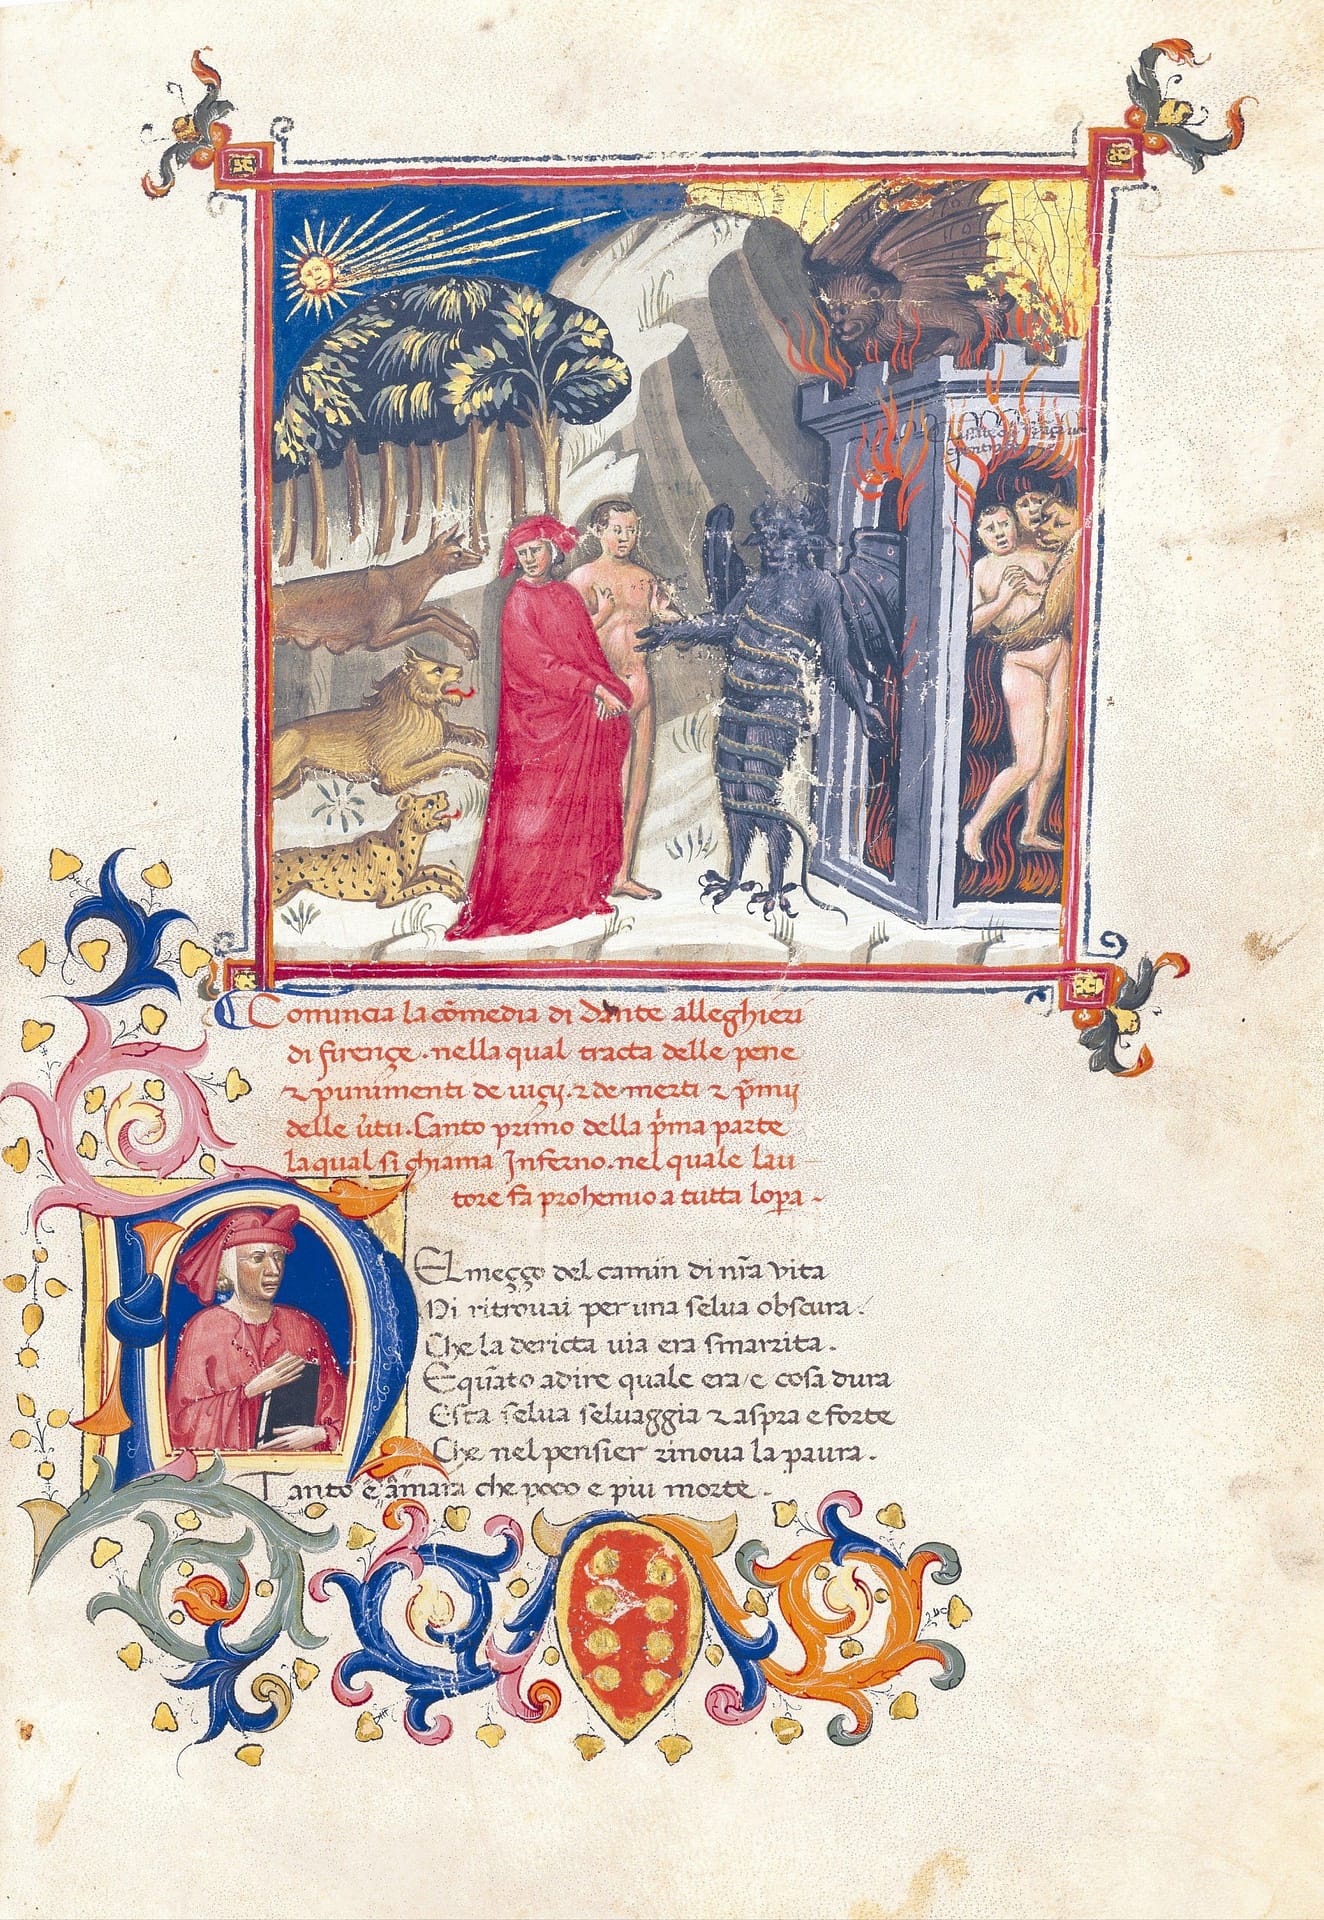 Comincia la cōmedia di Dante alleghieri
di firençe · nella qual tracta delle pene
⁊ punimenti de uiçij · ⁊ de meriti ⁊ p̄mij
delle ũtu · Canto primo della p̃ma parte
la qual si chiama Inferno · nel quale lau
tore fa prohemio a tutta lopa ~
NEl meçço del camin di nr̃a vita
Mi ritrouai per una selua obscura ·
Che la dericta uia era smarrita ·
E quãto adire quale era / e cosa dura
Esta selua seluaggia ⁊ aspra e forte
Che nel pensier rinoua la paura ·
Tanto e amara che poco e piu morte ·